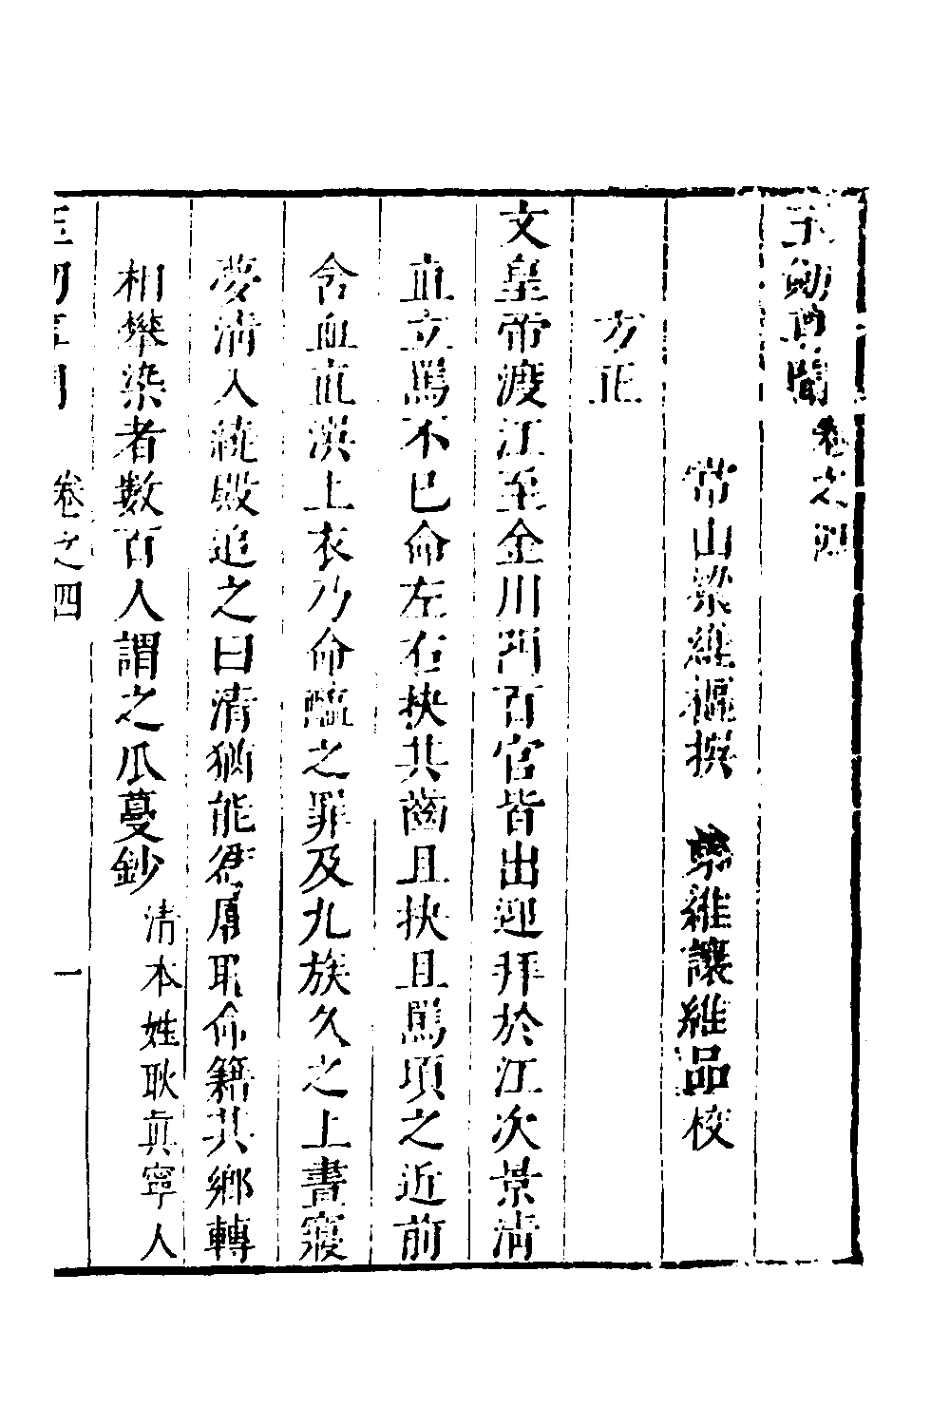 玉劒尊聞卷之四
常山梁維樞撰 維讓維品校
方正
文皇帝渡江至金川門百官皆出迎拜於江次景清
直立罵不已命左右抉其齒且抉且罵頃之近前
含血直噀上衣乃命醢之罪及九族久之上晝寢
夢清入繞殿追之曰清猶能為厲耶命籍其鄉轉
相攀染者數百人謂之瓜蔓鈔清本姓耿真寧人
卷之四 一